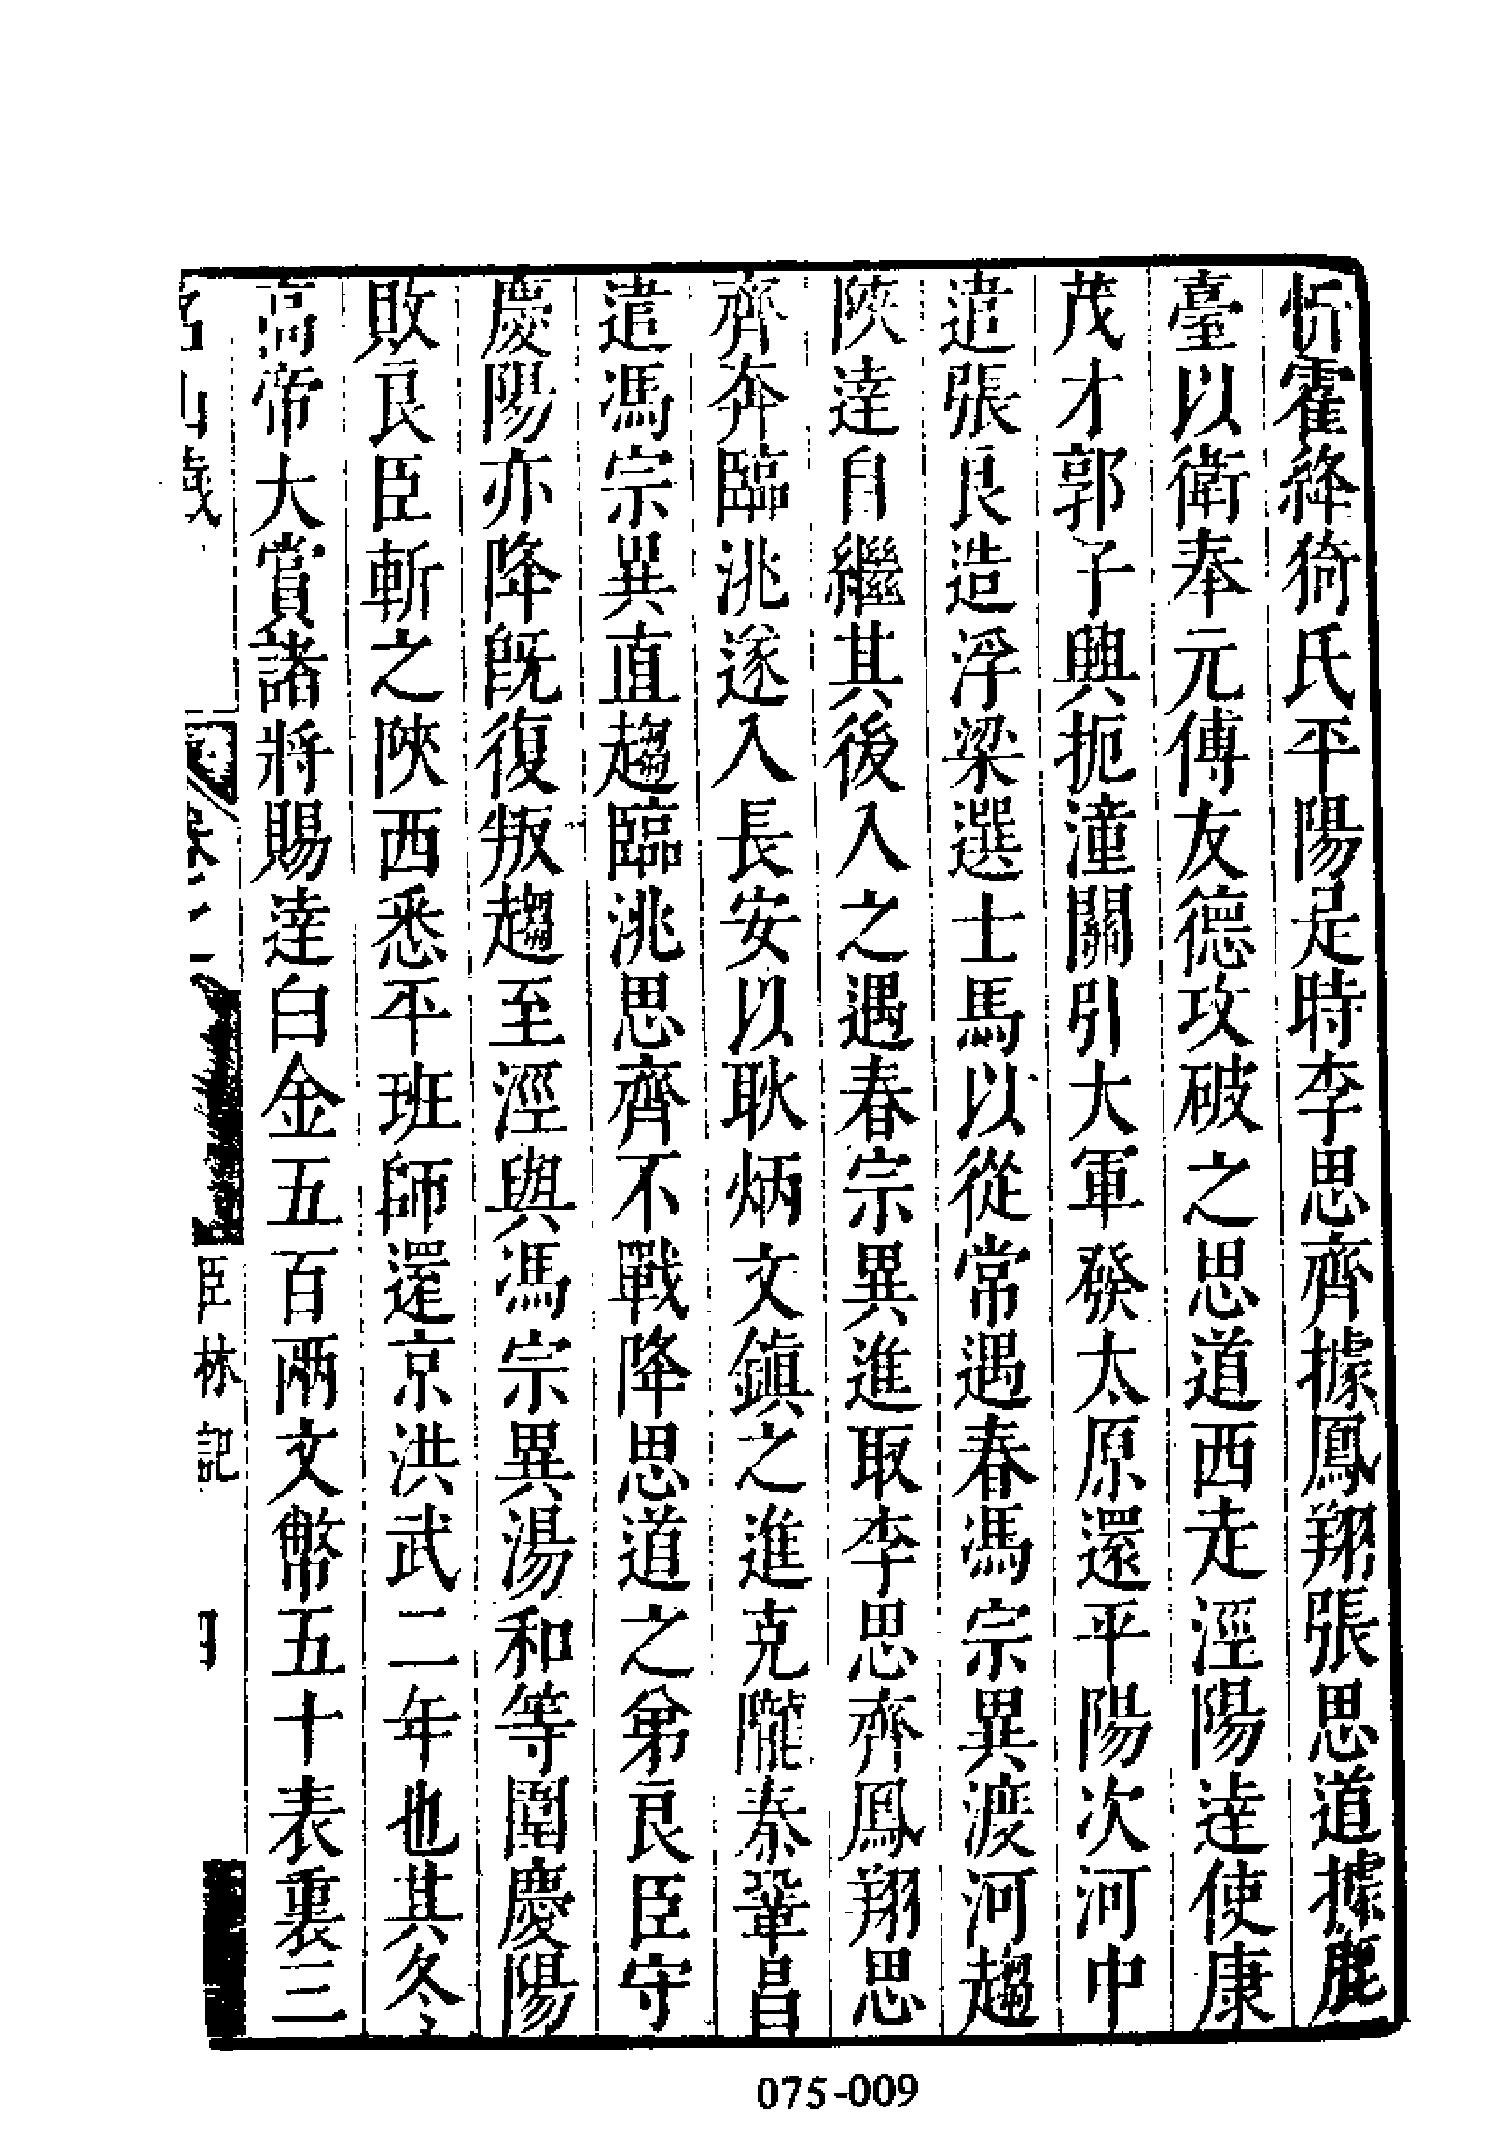 忻霍絳猗氏平陽是時李思齊據鳳翔張思道據鹿
臺以衛奉元傅友德攻破之思道西走涇陽達使康
茂才郭子興扼潼關引大軍發太原還平陽次河中
造張良造浮梁選士馬以從常遇春馮宗異渡河趨
陝達自繼其後入之遇春宗異進取李思齊鳳翔思
齊奔臨洮遂入長安以耿炳文鎮之進克隴秦鞏昌
遣馮宗異直趨臨洮思齊不戰降思道之弟良臣守
慶陽亦降旣復叛趨至涇與馮宗異湯和等圍慶陽
敗良臣斬之陝西悉平班師還京洪武二年也其冬
高帝大賞諸將賜達白金五百兩文幣五十表裏三
名山藏 卷之 臣林記 四
075-009